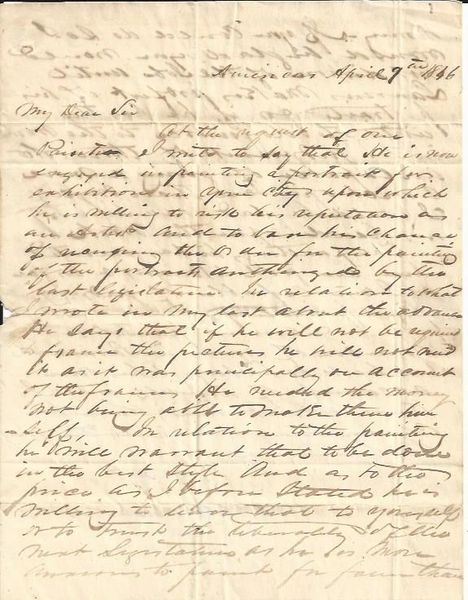 Americus April 9th 1846
My Dear Sir
At the request of our
Painter I write to say that He is now
engaged in painting a portrait for
exhibition in your City upon which
he is willing to risk his reputation as
an artist and to base his chance
of receiving the order for the painting
of the portraits authorized by the
last legislature In relation to what
I wrote in my last about the advance
He says that if he will not be required
to frame the pictures he will not need
it as it was principally on account
of the frames He needed the money
not being able to make them him
self, In relation to the painting
he will warrant that to be done
in the best style And as to the
price as I before Stated he is
willing to leave that to yourself
or to trust the liberality of the
next Legislature as he is more
anxious to paint for fame than